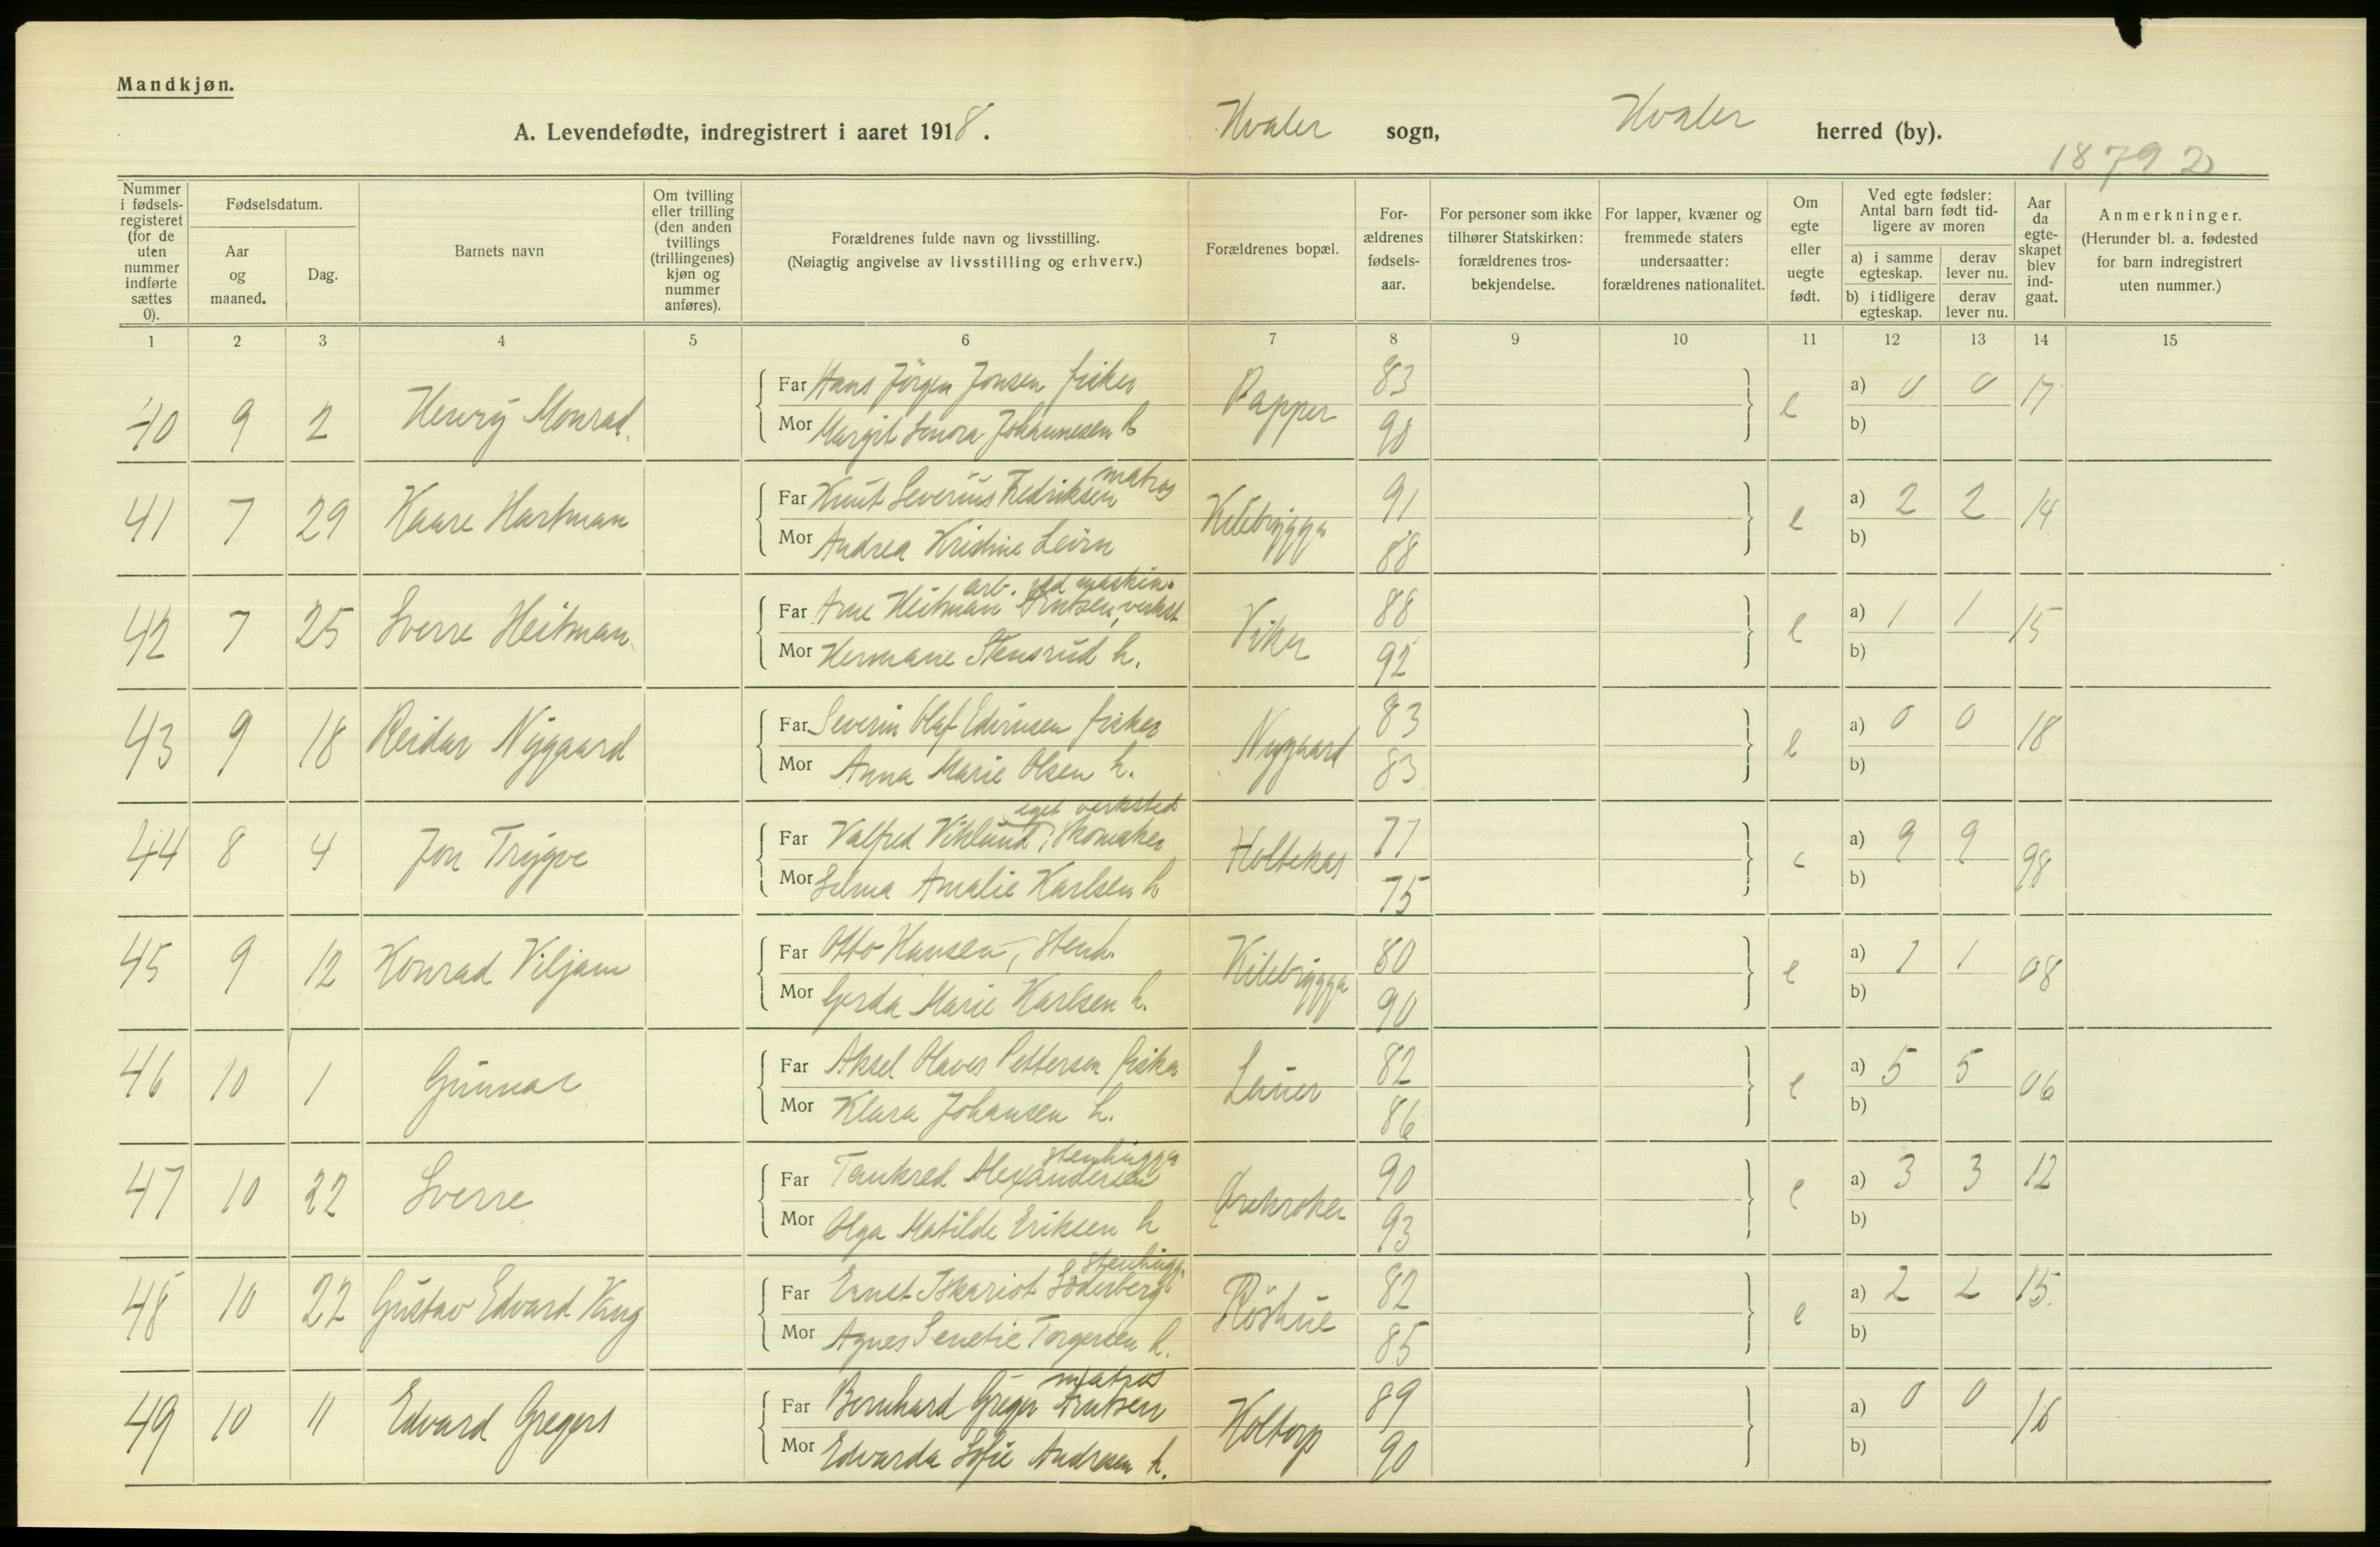 Mandkjøn.
A. Levendefødte, indregistrert i aaret 1918. Hvaler sogn, Hvaler herred (by).
18792
Nummer i fødsels-registeret (for de uten nummer indførte sættes 0).
Fødselsdatum.
Aar og maaned.
Dag.
Barnets navn
Om tvilling eller trilling (den anden tvillings (trillingenes) kjøn og nummer anføres).
Forældrenes fulde navn og livsstilling.
(Nøiagtig angivelse av livsstilling og erhverv.)
Forældrenes bopæl.
For-ældrenes fødsels-aar.
For personer som ikke tilhører Statskirken: forældrenes tros-bekjendelse.
For lapper, kvæner og fremmede staters undersaatter: forældrenes nationalitet.
Om egte eller uegte født.
Ved egte fødsler: Antal barn født tid-ligere av moren
a) i samme egteskap. derav lever nu.
b) i tidligere egteskap. derav lever nu.
Aar da egte-skapet blev ind-gaat.
Anmerkninger.
(Herunder bl. a. fødested for barn indregistrert uten nummer.)
1 2 3 4 5 6 7 8 9 10 11 12 13 14 15
40 9 2 Henry Monrad. Far Hans Jörgen Jonsen fisker Papper 83 e a) 0 0 17
Mor Margit Lenora Johannesen h 90 b)
41 7 29 Kaare Hartman Far Knut Severius Fredriksen matros Kilebrygga 91 e a) 2 2 14
Mor Andrea Kristine 88 b)
42 7 25 Sverre Heitman Far Arne Heitman Arntsen, arb. ved maskin. verkst Viker 88 e a) 1 1 15
Mor Hermane Stensrud h. 92 b)
43 9 18 Reidar Nygaard Far Severin Olaf Edvinsen fisker Nygaard 83 e a) 0 0 18
Mor Anna Marie Olsen h. 83 b)
44 8 4 Jon Trygve Far Valfred Viklund, Skomaker eget verksted Holtekas 71 e a) 9 9 98
Mor Selma Amalie Karlsen h 75 b)
45 9 12 Konrad Viljam Far Otto Hansen, stenh. Kilebrygga 80 e a) 1 1 08
Mor Gerda Marie Karlsen h. 90 b)
46 10 1 Gunnar Far Aksel Olaves Pettersen fisker Lauer 82 e a) 5 5 06
Mor Klara Johansen h. 86 b)
47 10 22 Sverre Far Tankred Alexandersen stenhugga 90 e a) 3 3 12
Mor Olga Matilde Eriksen h 93 b)
48 10 22 Gustav Edvard King Far Ernst Iskariot Söderberg stenhugg. 82 e a) 2 2 15
Mor Agnes Senetie Torgersen h. 85 b)
49 10 11 Edvard Gregers Far Bernhard Greger Arntsen matros Holtorp 89 a) 0 0 16
Mor Edvarda Sofie Andresen h. 90 b)